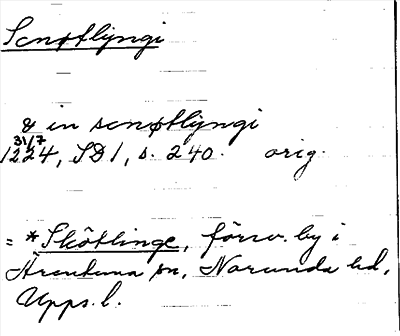 Scnøtlyngi
& in scnøtlyngi
31/7
1224, SD 1, s. 240. orig.
= *Skötlinge, försv. by i
Ärentuna sn, Norunda hd,
Upps. l.